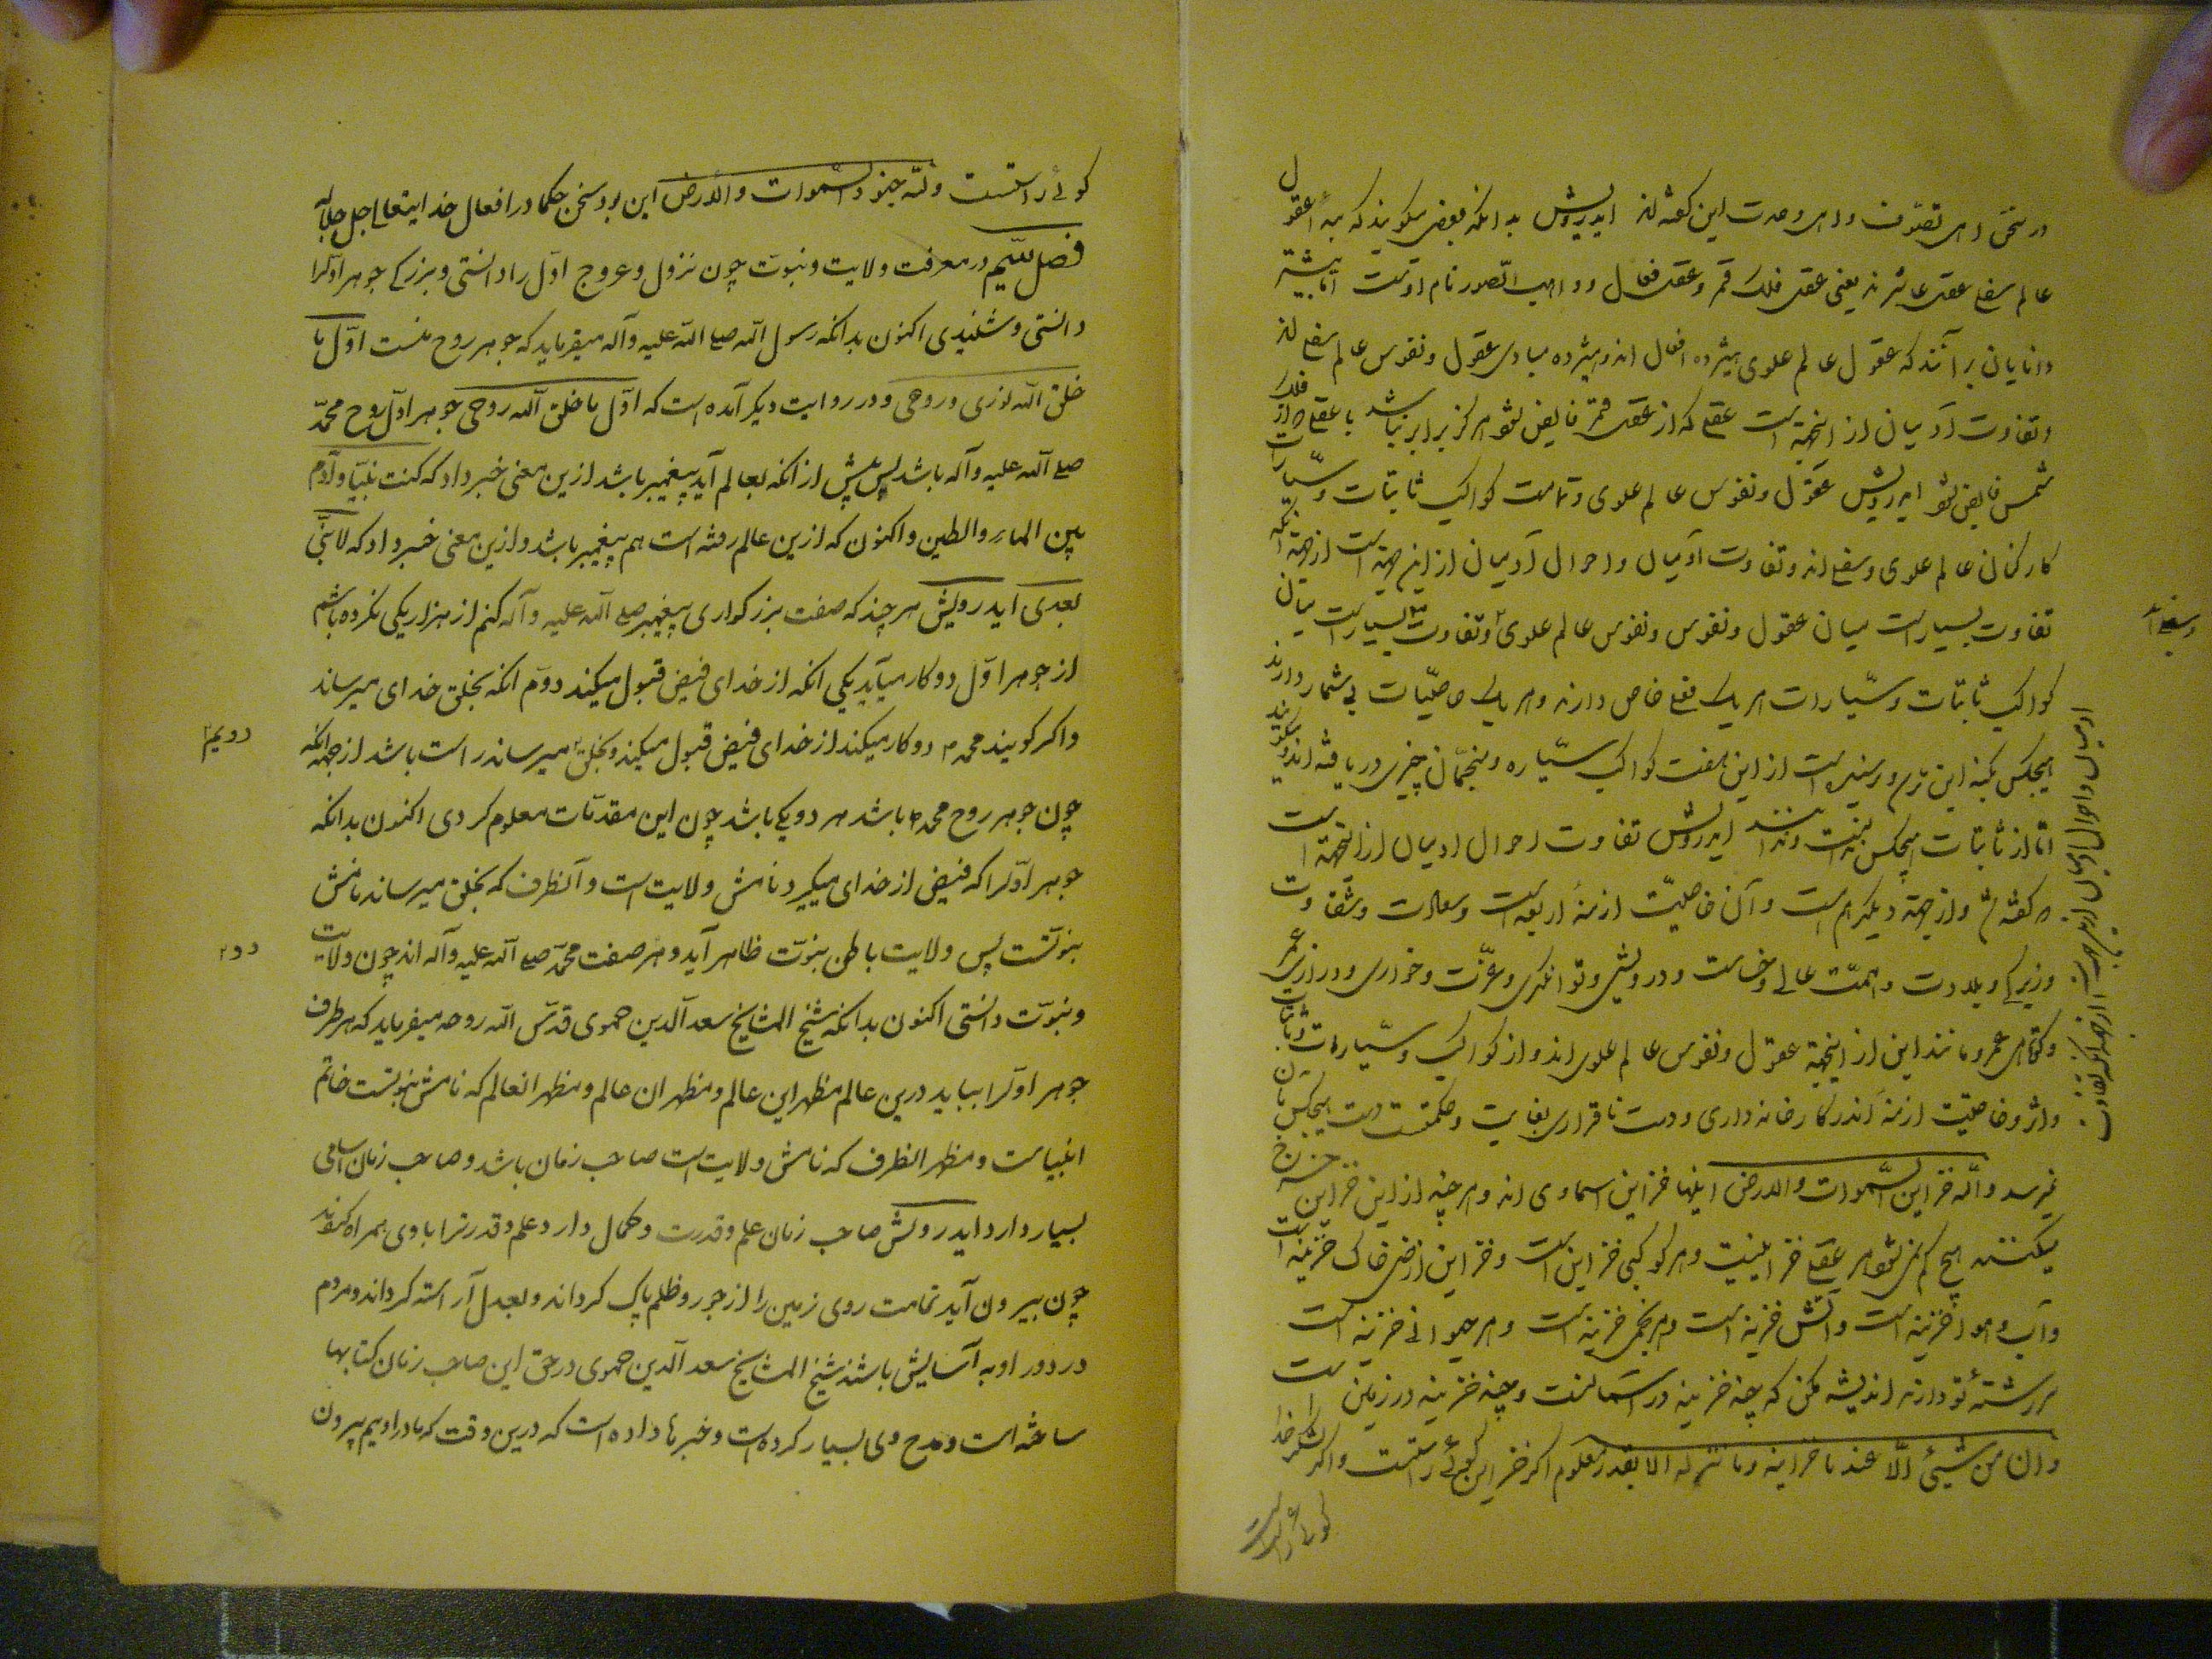 در سخن اهل تصوف و اهل وحدت این گفته‌اند ایدرویش بدانکه بعضی میگویند که مبدأ عقول
عالم سفلی عقل عاشرند یعنی عقل فلک قمر و عقل فعال و واهب الصور نام اوست اما بیشتر
دانایان برآنند که عقول عالم علوی هر ده فعال اند و هر ده مبادی عقول و نفوس عالم سفلی‌اند
و تفاوت آدمیان از اینجهة است عقلی که از عقل قمر فایض شود هرگز برابر نباشد با عقلی که از فلک
شمس فایض شود ایدرویش عقول و نفوس عالم علوی و تمامت کواکب ثابتات و سیارات
کارکنان عالم علوی و سفلی‌اند و تفاوت آدمیان و احوال آدمیان ازین جهة است از جهة آنکه
تفاوت بسیار است میان عقول و نفوس و نفوس عالم علوی و تفاوت بسیار است میان
کواکب ثابتات و سیارات هر یکی فعلی خاص دارند و هر یکی خاصیات بی شمار دارند
هیچکس بکنه این نرسید و نرسیده است از این هفت کواکب سیاره و منجمان چیزی دریافته‌اند و میگویند
اما از ثابتات هیچکس ندانست و نداند ایدرویش تفاوت احوال آدمیان از اینجهة است
که گفته شد و از جهة دیگر هم است و آن خاصیت ازمنهٔ اربعه است و سعادت و شقاوت
و زیرکی و بلادت و همت عالی و خساست و درویشی و توانگری و عزت و خواری و درازی عمر
و کوتاهی عمر و مانند این از اینجهة عقول و نفوس عالم علوی اند و از کواکب و سیارات و ثابتات
و اثر و خاصیت ازمنه‌اند
نمیرسد و لله خزاین السموات والارض اینها خزاین سماوی اند و هر چند از این خزاین خرج
میکنند هیچ کم نمی شود هر عقلی خزاینیست و هر کوکبی خزاین است و خزاین ارضی خاک خزینه است
و آب و هوا خزینه است و آتش خزینه است و هر تخمی خزینه است و هر حیوانی خزینه است
سررشتهٔ تو دارند اندیشه مکن که چند خزینه در آسمانست و چند خزینه در زمین است
و ان من شیئ الا عندنا خزاینه و ما ننزله الا بقدر معلوم اگر خزاین گوئی راستست و اگر لشکر خدا
گوئی راست
گوئی راستست و لله جنود السموات والارض این بود سخن حکما در افعال خدایتعالی جل جلاله
فصل سیم در معرفت ولایت و نبوت چون نزول و عروج اول را دانستی و بزرگی جوهر اولرا
دانستی و شنیدی اکنون بدانکه رسول الله صلی الله علیه و آله میفرماید که جوهر روح منست اول ما
خلق الله نوری و روحی و در روایت دیگر آمده است که اول ما خلق الله روحی جوهر اول روح محمد
صلی الله علیه و آله باشد پس پیش از آنکه بعالم آید پیغمبر باشد ازین معنی خبر داد که کنت نبیا و آدم
بین الماء والطین و اکنون که ازین عالم رفته است هم پیغمبر باشد و ازین معنی خبر داد که لا نبی
بعدی ایدرویش هر چند که صفت بزرگواری پیغمبر صلی الله علیه و آله کنم از هزار یکی نکرده باشم
از جوهر اول دو کار میآید یکی آنکه از خدای فیض قبول میکند دوم آنکه بخلق خدای میرساند
و اگر گویند محمد م دو کار میکند از خدای فیض قبول میکند و بخلق میرساند راست باشد از جهة آنکه
چون جوهر روح محمد م باشد هر دو یکی باشد چون این مقدمات معلوم کردی اکنون بدانکه
جوهر اولرا که فیض از خدای میگیرد نامش ولایت است و آنطرف که بخلق میرساند نامش
نبوتست پس ولایت باطن نبوت ظاهر آید و هر صفت محمد صلی الله علیه و آله اند چون ولایت
و نبوت دانستی اکنون بدانکه شیخ المشایخ سعد الدین حموی قدس الله روحه میفرماید که هر طرف
جوهر اولرا بباید درین عالم مظهر این عالم و مظهر ان عالم و مظهر انعالم که نامش نبوتست خاتم
انبیاست و مظهر انطرف که نامش ولایت است صاحب زمان باشد و صاحب زمان اسامی
بسیار دارد ایدرویش صاحب زمان علم و قدرت و کمال دارد علم و قدرترا با وی همراه کنند
چون بیرون آید تمامت روی زمین را از جور و ظلم پاک گرداند و بعدل آراسته گرداند و مردم
در دور او به آسایش باشند شیخ المشایخ سعد الدین حموی در حق این صاحب زمان کتابها
ساخته است و مدح وی بسیار کرده است و خبرها داده است که درین وقت که ما دراویم بیرون